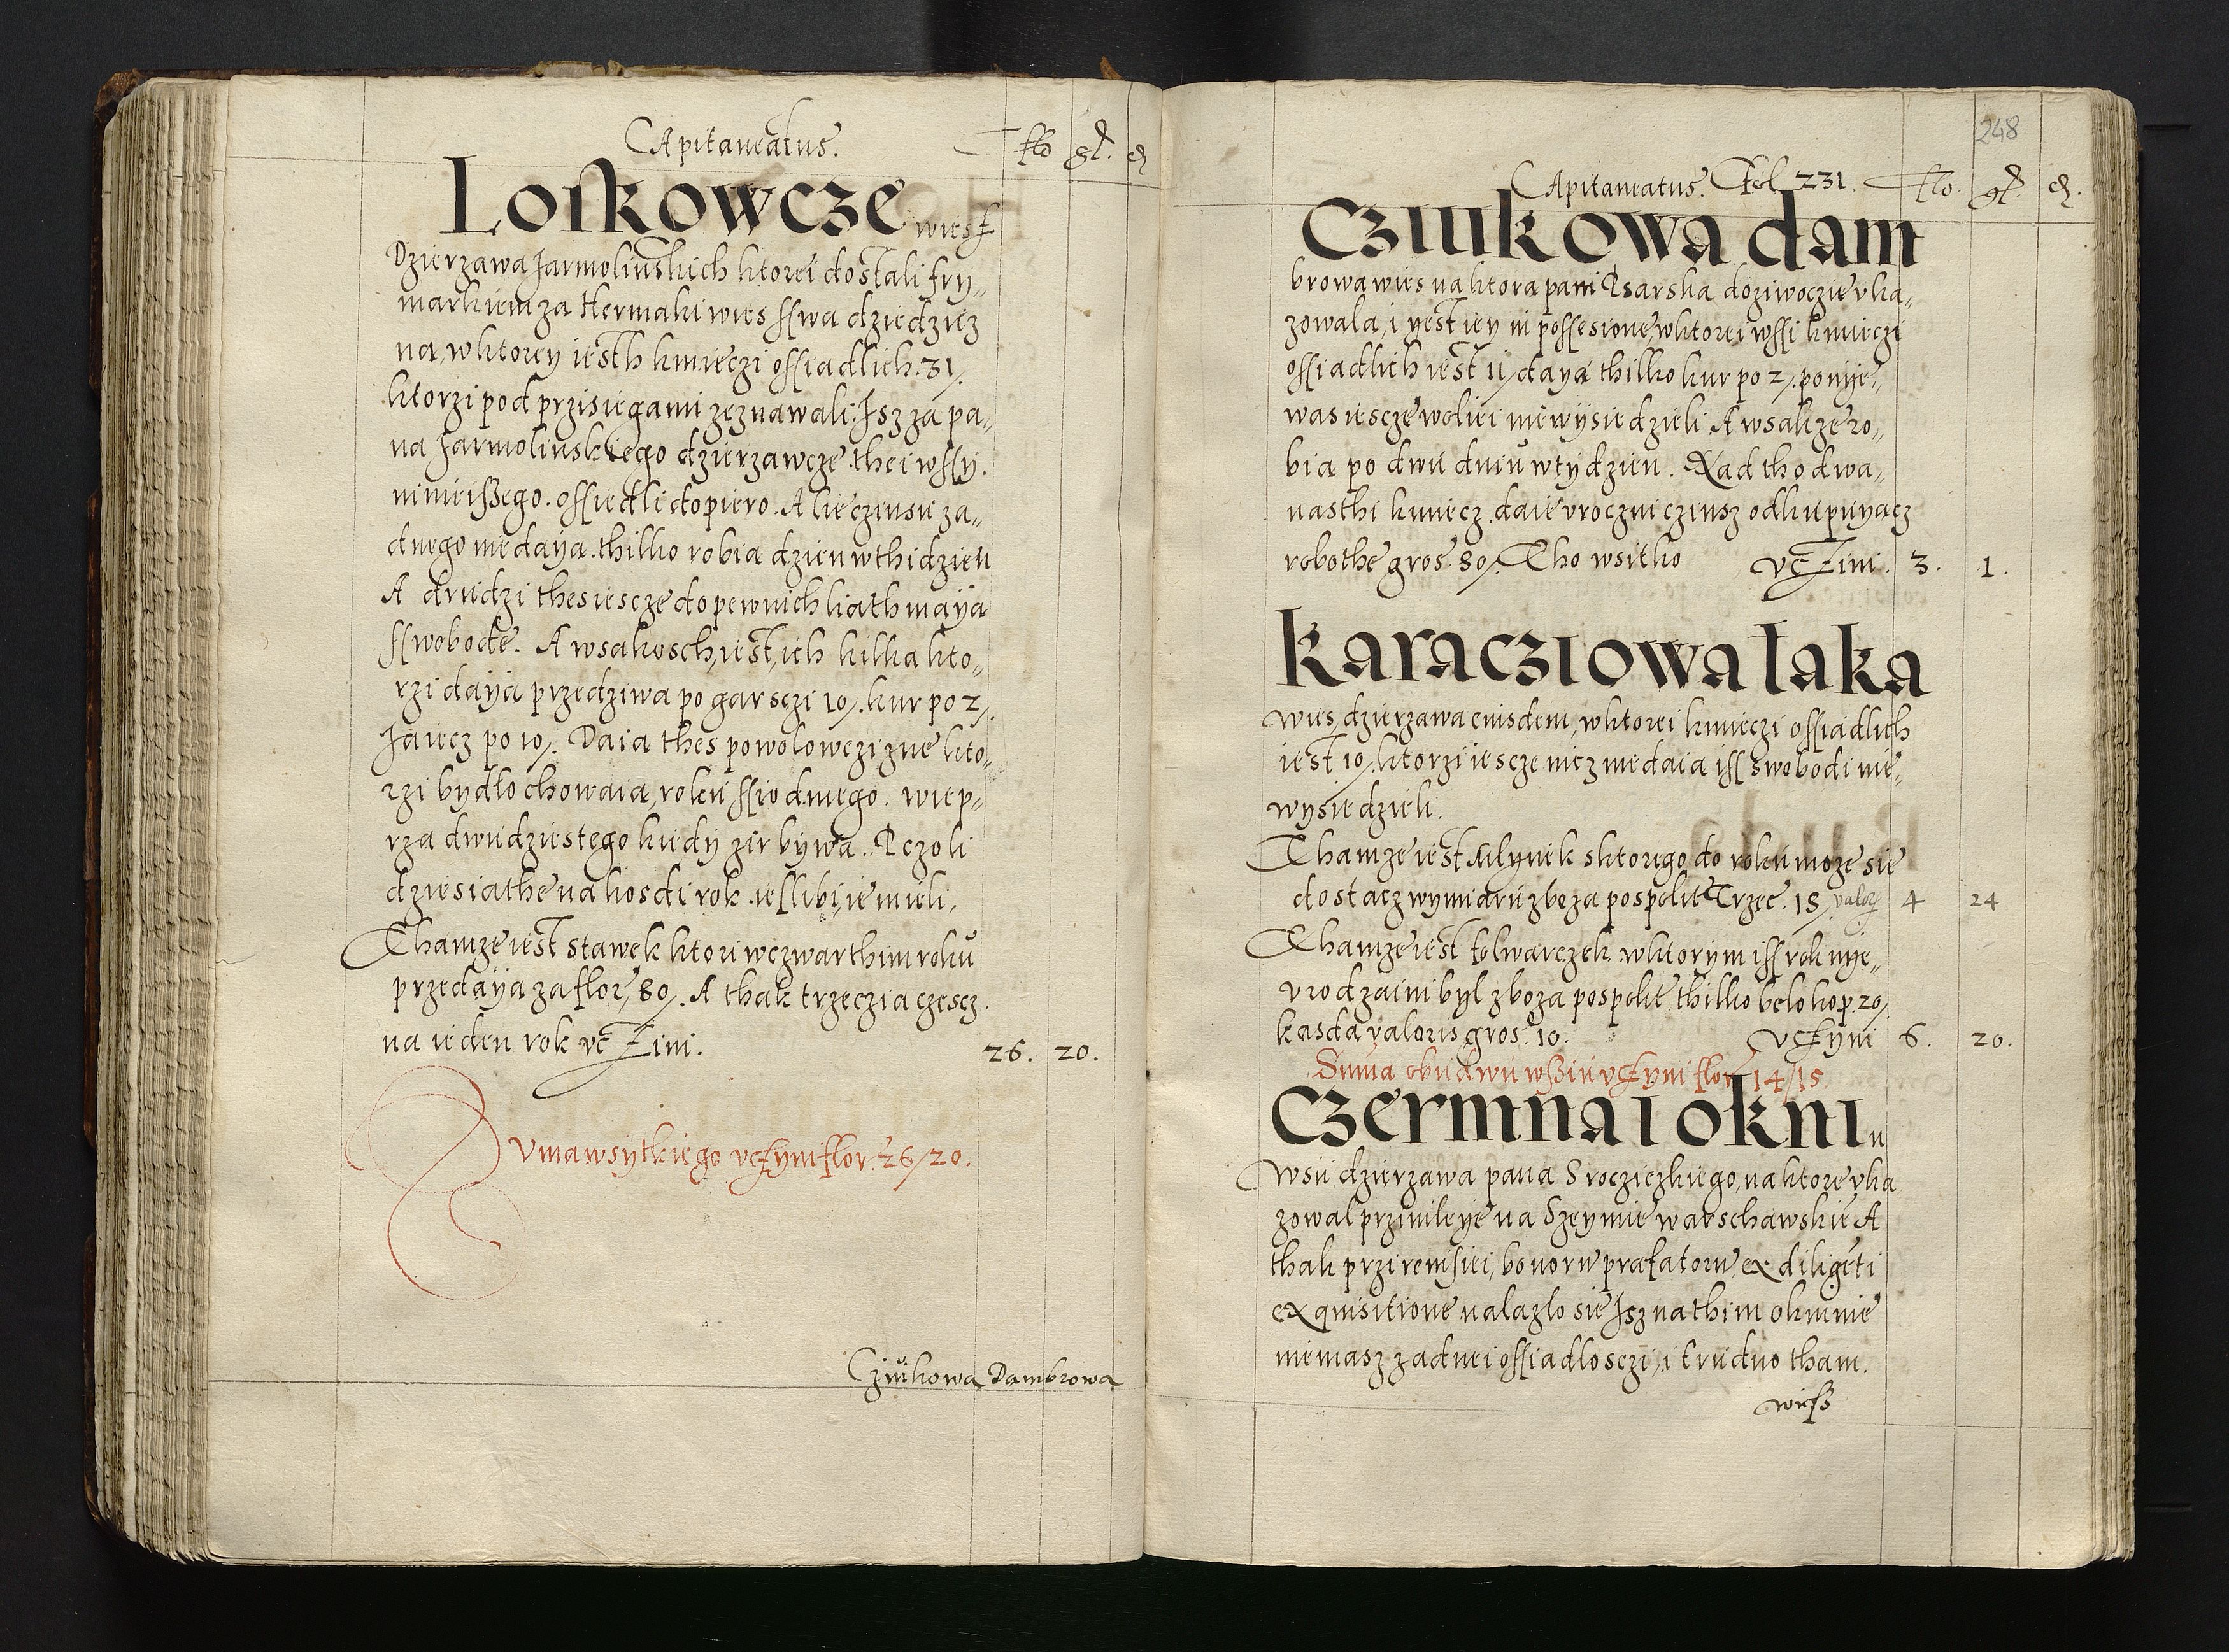 Capitaneatus.
flo gl. d
Loskowcze wiesz
Dzierzawa Jarmolinskich ktorei dostali fry„
markiem za Hermaki wies sswa dziedzicz
na, w ktorey iesth kmieczi ossiadlich. 31/.
ktorzi pod przisiegami zeznawali: Isz za pa„
na Jarmolinskiego dzierzawcze. thei wssy.
ninieißego. ossiedli dopiero. Alie czinsu za„
dnego nie daya. thilko robia dzien w thidzien
A drudzi thes iescze do pewnich liath maya
sswobode. A wsakosch, iest, ich kilka kto„
rzi daya przedziwa po garsczi 10/. kur po 2/.
Jaiecz po 10/. Daia thes powolowczizne kto„
rzi bydło chowaia, roku ssiodmego. wiep„
rza dwudziestego kiedy zir bywa. Pczoli
dziesiathe na kosdi rok. iesslibi, ie mieli,
Thamze iest stawek ktori w czwarthim roku
przedaya za flor, 80/. A thak trzeczia czescz.
na ieden rok uczini. 26. 20.
Suma wsytkiego vczyni flor. 26/20.
Cziukowa Dambrowa
248
Capitaneatus. Fol 231. flo. gl. d.
Cziukowa dam
browa wies na ktora pani Psarska doziwoczie vka„
zowala, i yest iey in possesione, w ktorei wssi kmieczi
ossiadlich iest 11/ daya thilko kur po 2/. ponije„
was iescze woliei nie wysiedzieli. A wsakze ro„
bia po dwu dniu w tydzien. Nad tho dwa„
nasthi kmiecz. daie vroczni czinsz odkupuyacz
robothe gros. 80/. Tho wsitko vczini. 3. 1.
Karacziowa laka
wies, dzierzawa eiusdem, w ktorei kmieczi ossiadlich
iest 10/. ktorzi iescze nicz nie daia iss swobodi nie„
wysiedzieli.
Thamze iest Mlynek s ktorego do roku moze sie
dostacz wymiaru zboza pospolite Trzec. 18/ valor 4 24
Thamze iest folwarczek w ktorym iss rok nije„
vrodzaini byl zboza pospolite thilko belo kop. 20/
kasda valoris gros. 10. vczyni 6. 20.
Suma obudwu wßiu vczyni flor 14/15.
Czermna i okni n
Wsii dzierzawa pana Srocziczkiego, na ktore vka
zowal przivileye na Szeymie warschawskie A
thak przi revisiei, bonoru prafatoru, ex diligeti
exquisitione nalazlo sie Isz na thim okninie
nie masz zadnei ossiadlosczi, i trudno tham.
wieß